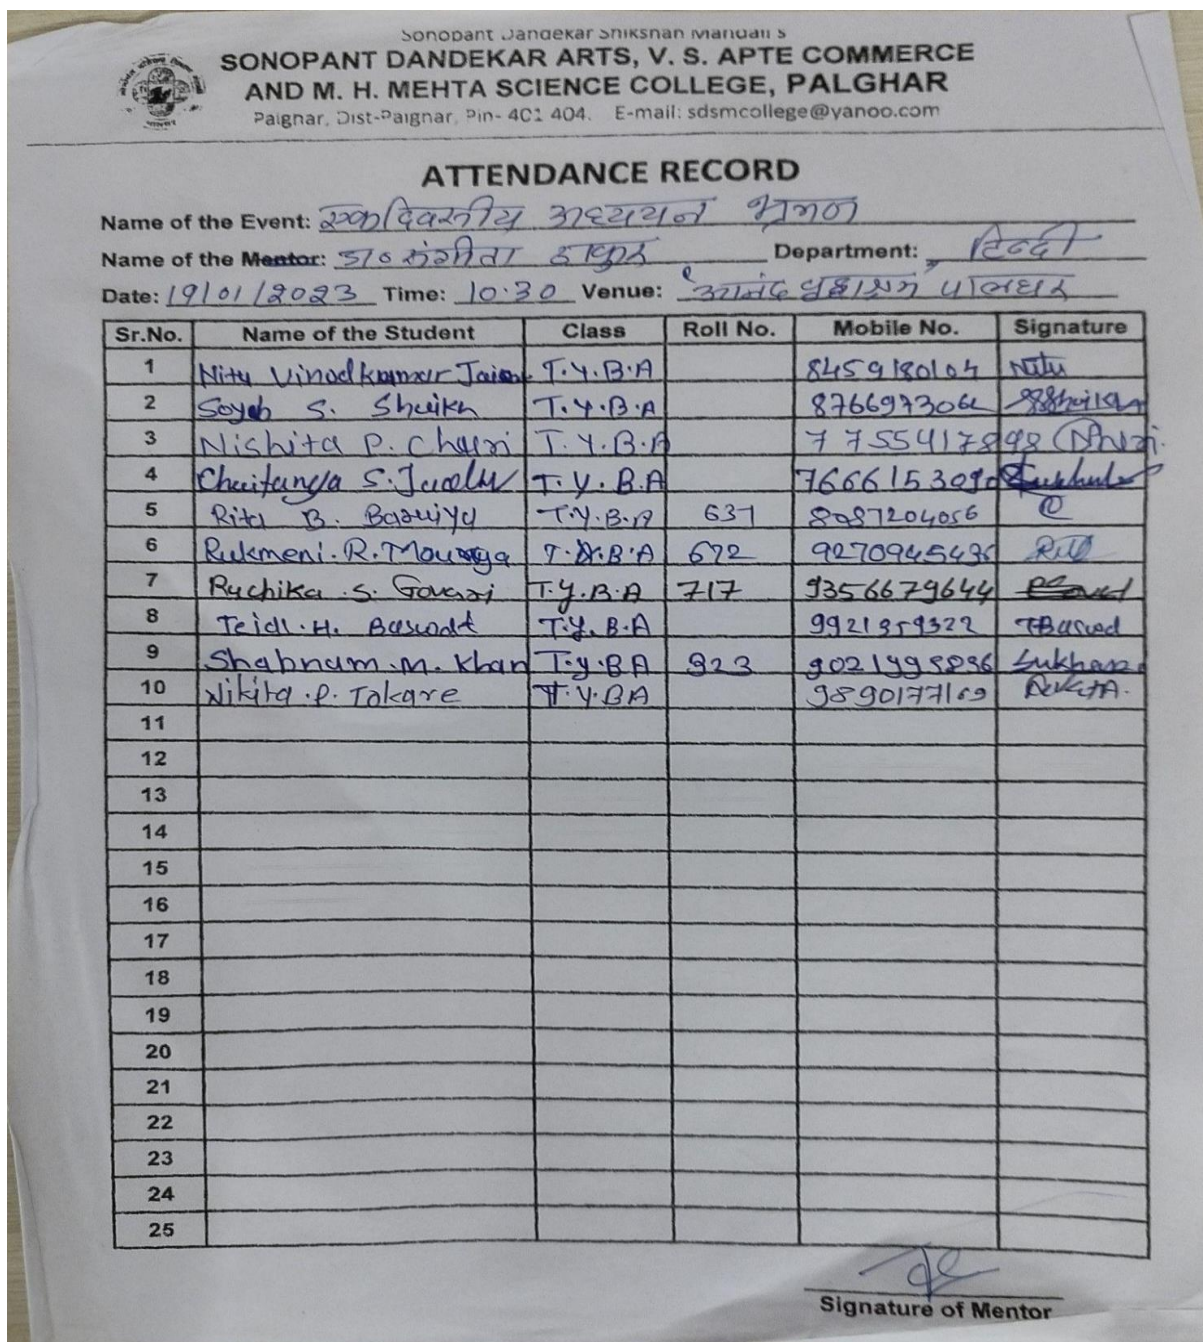 Sonopant Dandekar Shikshan Mandali's
SONOPANT DANDEKAR ARTS, V. S. APTE COMMERCE
AND M. H. MEHTA SCIENCE COLLEGE, PALGHAR
Palghar, Dist-Palghar, Pin- 401 404. E-mail: sdsmcollege@yahoo.com
ATTENDANCE RECORD
Name of the Event: एकदिवसीय अध्ययन भ्रमण
Name of the Mentor: डॉ० संगीता ठाकुर Department: हिन्दी
Date: 19/01/2023 Time: 10:30 Venue: आनंद वृद्धाश्रम पालघर
Sr.No. Name of the Student Class Roll No. Mobile No. Signature
1 Nitu Vinodkumar T.Y.B.A 8459180104 Nitu
2 Soyeb S. Shaikh T.Y.B.A SSShaikh
3 Nishita P. Churi T.Y.B.A 7755417898
4 Chaitanya S. T.Y.B.A
5 Rita B. Bariya T.Y.B.A 631 8087204056
6 Rukmeni.R. T.Y.B.A 672
7 Ruchika .S. Govari T.Y.B.A 717 9356679644
8 H. T.Y.B.A 9921359322
9 Shabnam.M.Khan T.y.BA 923
10 Nikita.P.Takare T.Y.BA 9890177169
11
12
13
14
15
16
17
18
19
20
21
22
23
24
25
Signature of Mentor